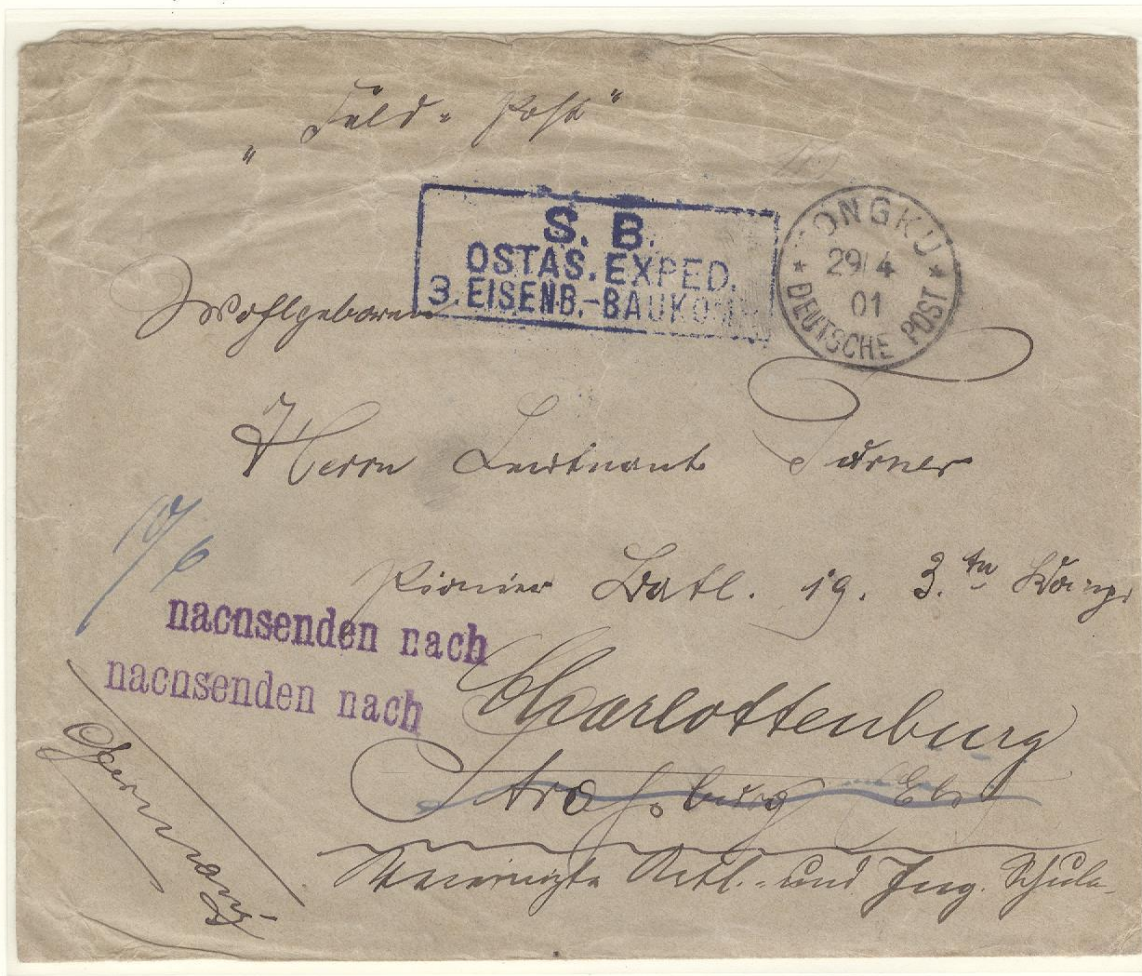 "Feld-Post"
S. B.
OSTAS. EXPED.
3. EISENB.-BAUKOM
TONGKU
29/4
01
* DEUTSCHE POST *
Wohlgeboren
Herrn Leutnant Turner
10/6
Pionier Batl. 19. 3.te Komp.
nachsenden nach
nachsenden nach
Charlottenburg
Straßburg Els.
Germany
Vereinigte Artl.- und Ing. Schule